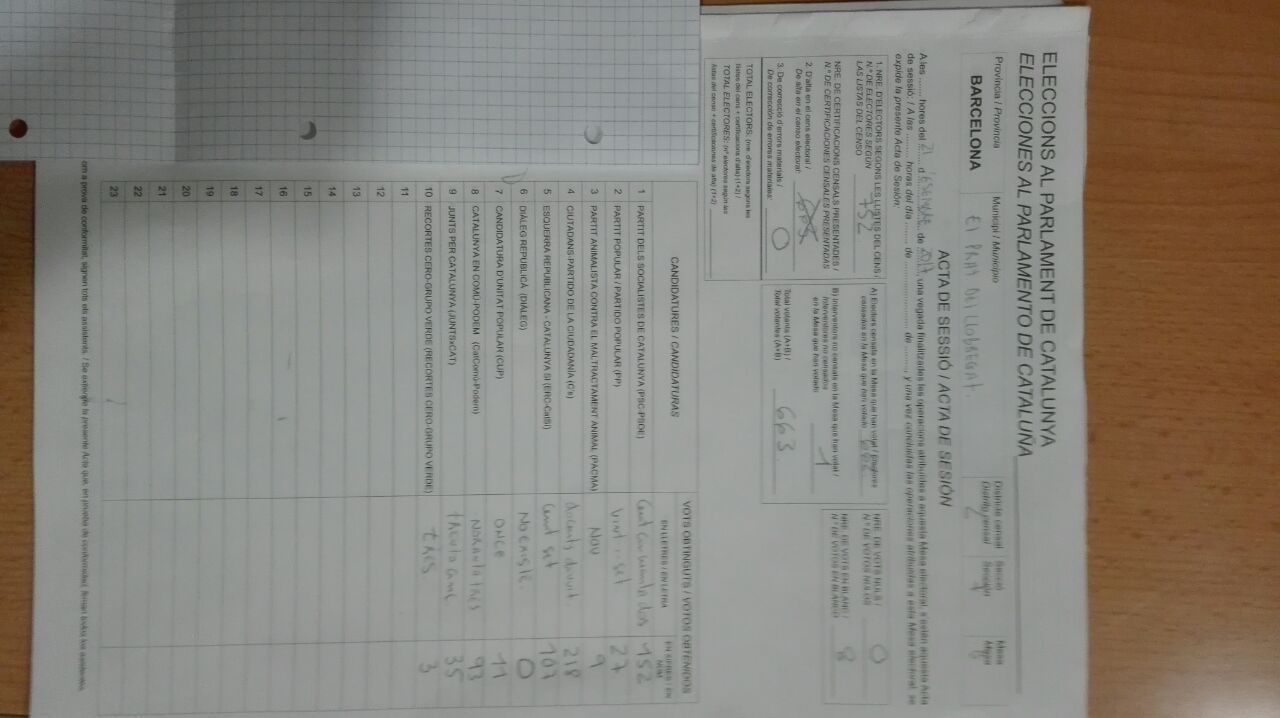 ELECCIONS AL PARLAMENT DE CATALUNYA
ELECCIONES AL PARLAMENTO DE CATALUÑA
Província / Provincia
Municipi / Municipio
Districte censal
Distrito censal
Secció
Sección
Mesa
Mesa
BARCELONA
El PRAT DEL LLOBREGAT.
2
ACTA DE SESSIÓ / ACTA DE SESIÓN
A les ........ hores del 21 d de 2017, una vegada finalitzades les operacions atribuïdes a aquesta Mesa electoral, s'estén aquesta Acta
de sessió. / A las ........ horas del día ........ de ........ de ........, y una vez concluidas las operaciones atribuidas a esta Mesa electoral, se
expide la presente Acta de Sesión.
1. NRE. D'ELECTORS SEGONS LES LLISTES DEL CENS /
N.º DE ELECTORES SEGÚN
LAS LISTAS DEL CENSO
752
NRE. DE CERTIFICACIONS CENSALS PRESENTADES /
N.º DE CERTIFICACIONES CENSALES PRESENTADAS
2. D'alta en el cens electoral /
De alta en el censo electoral:
3. De correcció d'errors materials /
De corrección de errores materiales:
0
TOTAL ELECTORS: (nre. d'electors segons les
llistes del cens + certificacions d'alta) (1+2) /
TOTAL ELECTORES: (nº electores según las
listas del censo + certificaciones de alta) (1+2)
A) Electors censats en la Mesa que han votat / Electores
censados en la Mesa que han votado 662
B) Interventors no censats en la Mesa que han votat /
Interventores no censados
en la Mesa que han votado
1
Total votants (A+B) /
Total votantes (A+B)
663
NRE. DE VOTS NULS /
N.º DE VOTOS NULOS
0
NRE. DE VOTS EN BLANC /
N.º DE VOTOS EN BLANCO
8
CANDIDATURES / CANDIDATURAS
VOTS OBTINGUTS / VOTOS OBTENIDOS
EN LLETRES / EN LETRA
EN XIFRES / EN NÚM.
1 PARTIT DELS SOCIALISTES DE CATALUNYA (PSC-PSOE) Cent cinquanta dos 152
2 PARTIT POPULAR / PARTIDO POPULAR (PP) Vint i set 27
3 PARTIT ANIMALISTA CONTRA EL MALTRACTAMENT ANIMAL (PACMA) Nou 9
4 CIUTADANS-PARTIDO DE LA CIUDADANÍA (C's) 218
5 ESQUERRA REPUBLICANA - CATALUNYA SÍ (ERC-CatSí) Cent set 107
6 DIÀLEG REPUBLICÀ (DIÀLEG) 0
7 CANDIDATURA D'UNITAT POPULAR (CUP) ONCE 11
8 CATALUNYA EN COMÚ-PODEM (CatComú-Podem) Noranta tres 93
9 JUNTS PER CATALUNYA (JUNTSxCAT) 35
10 RECORTES CERO-GRUPO VERDE (RECORTES CERO-GRUPO VERDE) tres 3
11
12
13
14
15
16
17
18
19
20
21
22
23
com a prova de conformitat, signen tots els assistents. / Se extiende la presente Acta que, en prueba de conformidad, firman todos los asistentes.